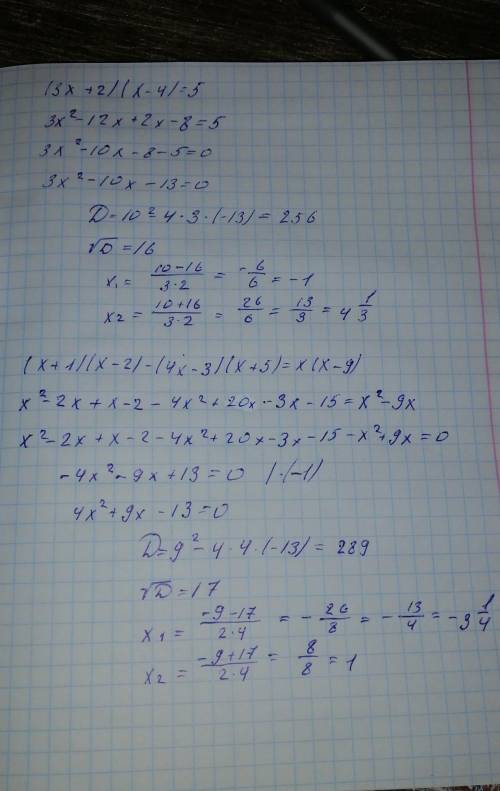 (3x+2)(x-4)=5
3x²-12x+2x-8=5
3x²-10x-8-5=0
3x²-10x-13=0
D=10²-4·3·(-13)=256
√D=16
x₁= (10-16)/(3·2) = -6/6 = -1
x₂= (10+16)/(3·2) = 26/6 = 13/3 = 4 1/3
(x+1)(x-2)-(4x-3)(x+5)=x(x-9)
x²-2x+x-2-4x²+20x-3x-15=x²-9x
x²-2x+x-2-4x²+20x-3x-15-x²+9x=0
-4x²-9x+13=0 |·(-1)
4x²+9x-13=0
D=9²-4·4·(-13)=289
√D=17
x₁= (-9-17)/(2·4) = -26/8 = -13/4 = -3 1/4
x₂= (-9+17)/(2·4) = 8/8 = 1